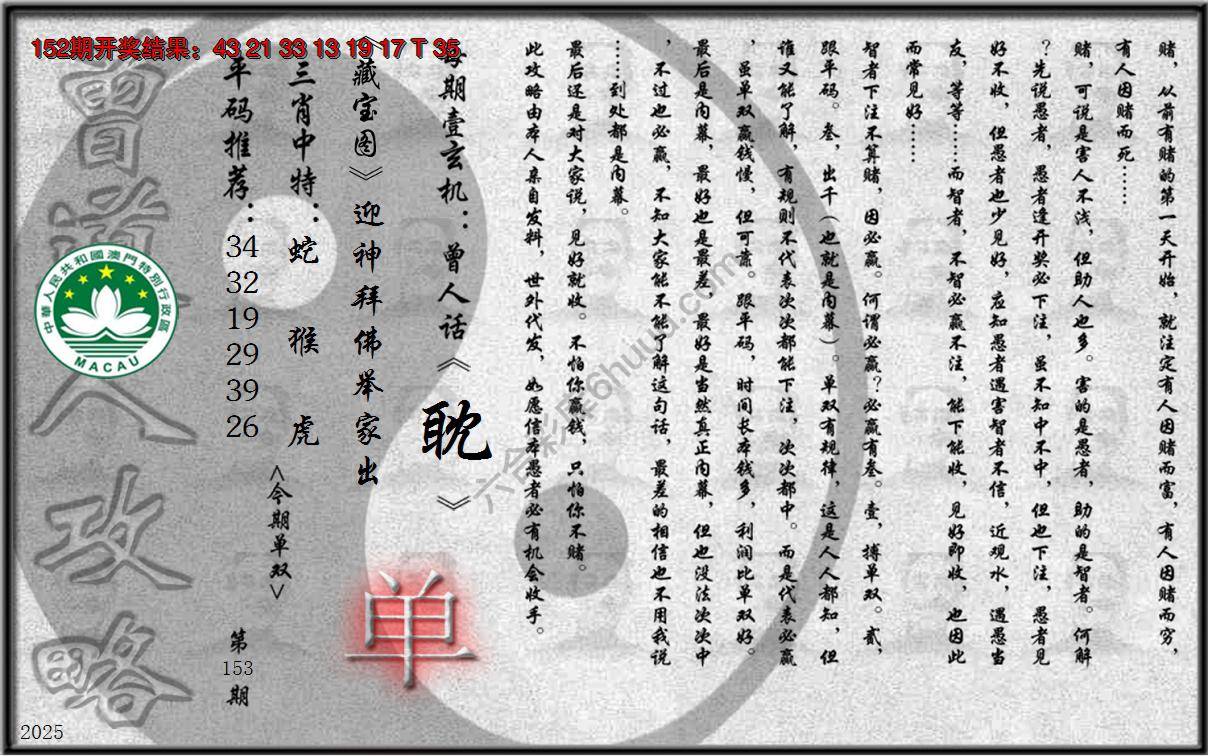 152期开奖结果：43 21 33 13 19 17 T 35
赌，从前有赌的第一天开始，就注定有人因赌而富，有人因赌而穷，
有人因赌而死……
赌，可说是害人不浅，但助人也多。害的是愚者，助的是智者。何解
？先说愚者，愚者逢开奖必下注，虽不知中不中，但也下注，愚者见
好不收，但愚者也少见好，应知愚者遇害智者不信，近观水，遇愚当
友，等等……而智者，不智必赢不注，能下能收，见好即收，也因此
而常见好……
智者下注不算赌，因必赢。何谓必赢？必赢有叁。壹，搏单双。贰，
跟平码。叁，出千（也就是内幕）。单双有规律，这是人人都知，但
谁又能了解，有规则不代表次次都能下注，次次都中。而是代表必赢
，虽单双赢钱慢，但可靠。跟平码，时间长本钱多，利润比单双好。
最后是内幕，最好也是最差，最好是当然真正内幕，但也没法次次中
，不过也必赢，不知大家能不能了解这句话，最差的相信也不用我说
……到处都是内幕。
最后还是对大家说，见好就收。不怕你赢钱，只怕你不赌。
此攻略由本人亲自发料，世外代发，如愿信本愚者必有机会收手。
每期壹玄机：曾人话《耽》
《藏宝图》迎神拜佛举家出
单
三肖中特：蛇 猴 虎
<今期单双>
平码推荐：34 32 19 29 39 26
第153期
曾道人攻略
中華人民共和國澳門特別行政區
MACAU
六合彩库6huuu.com
2025